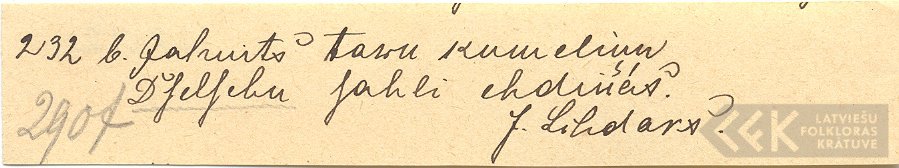 232 b. Jakurts tawu kumeliņu
Dselsehu sahli ehdinás.
J. Lihdars.
2907
LATVIEŠU
FOLKLORAS
KRĀTUVE